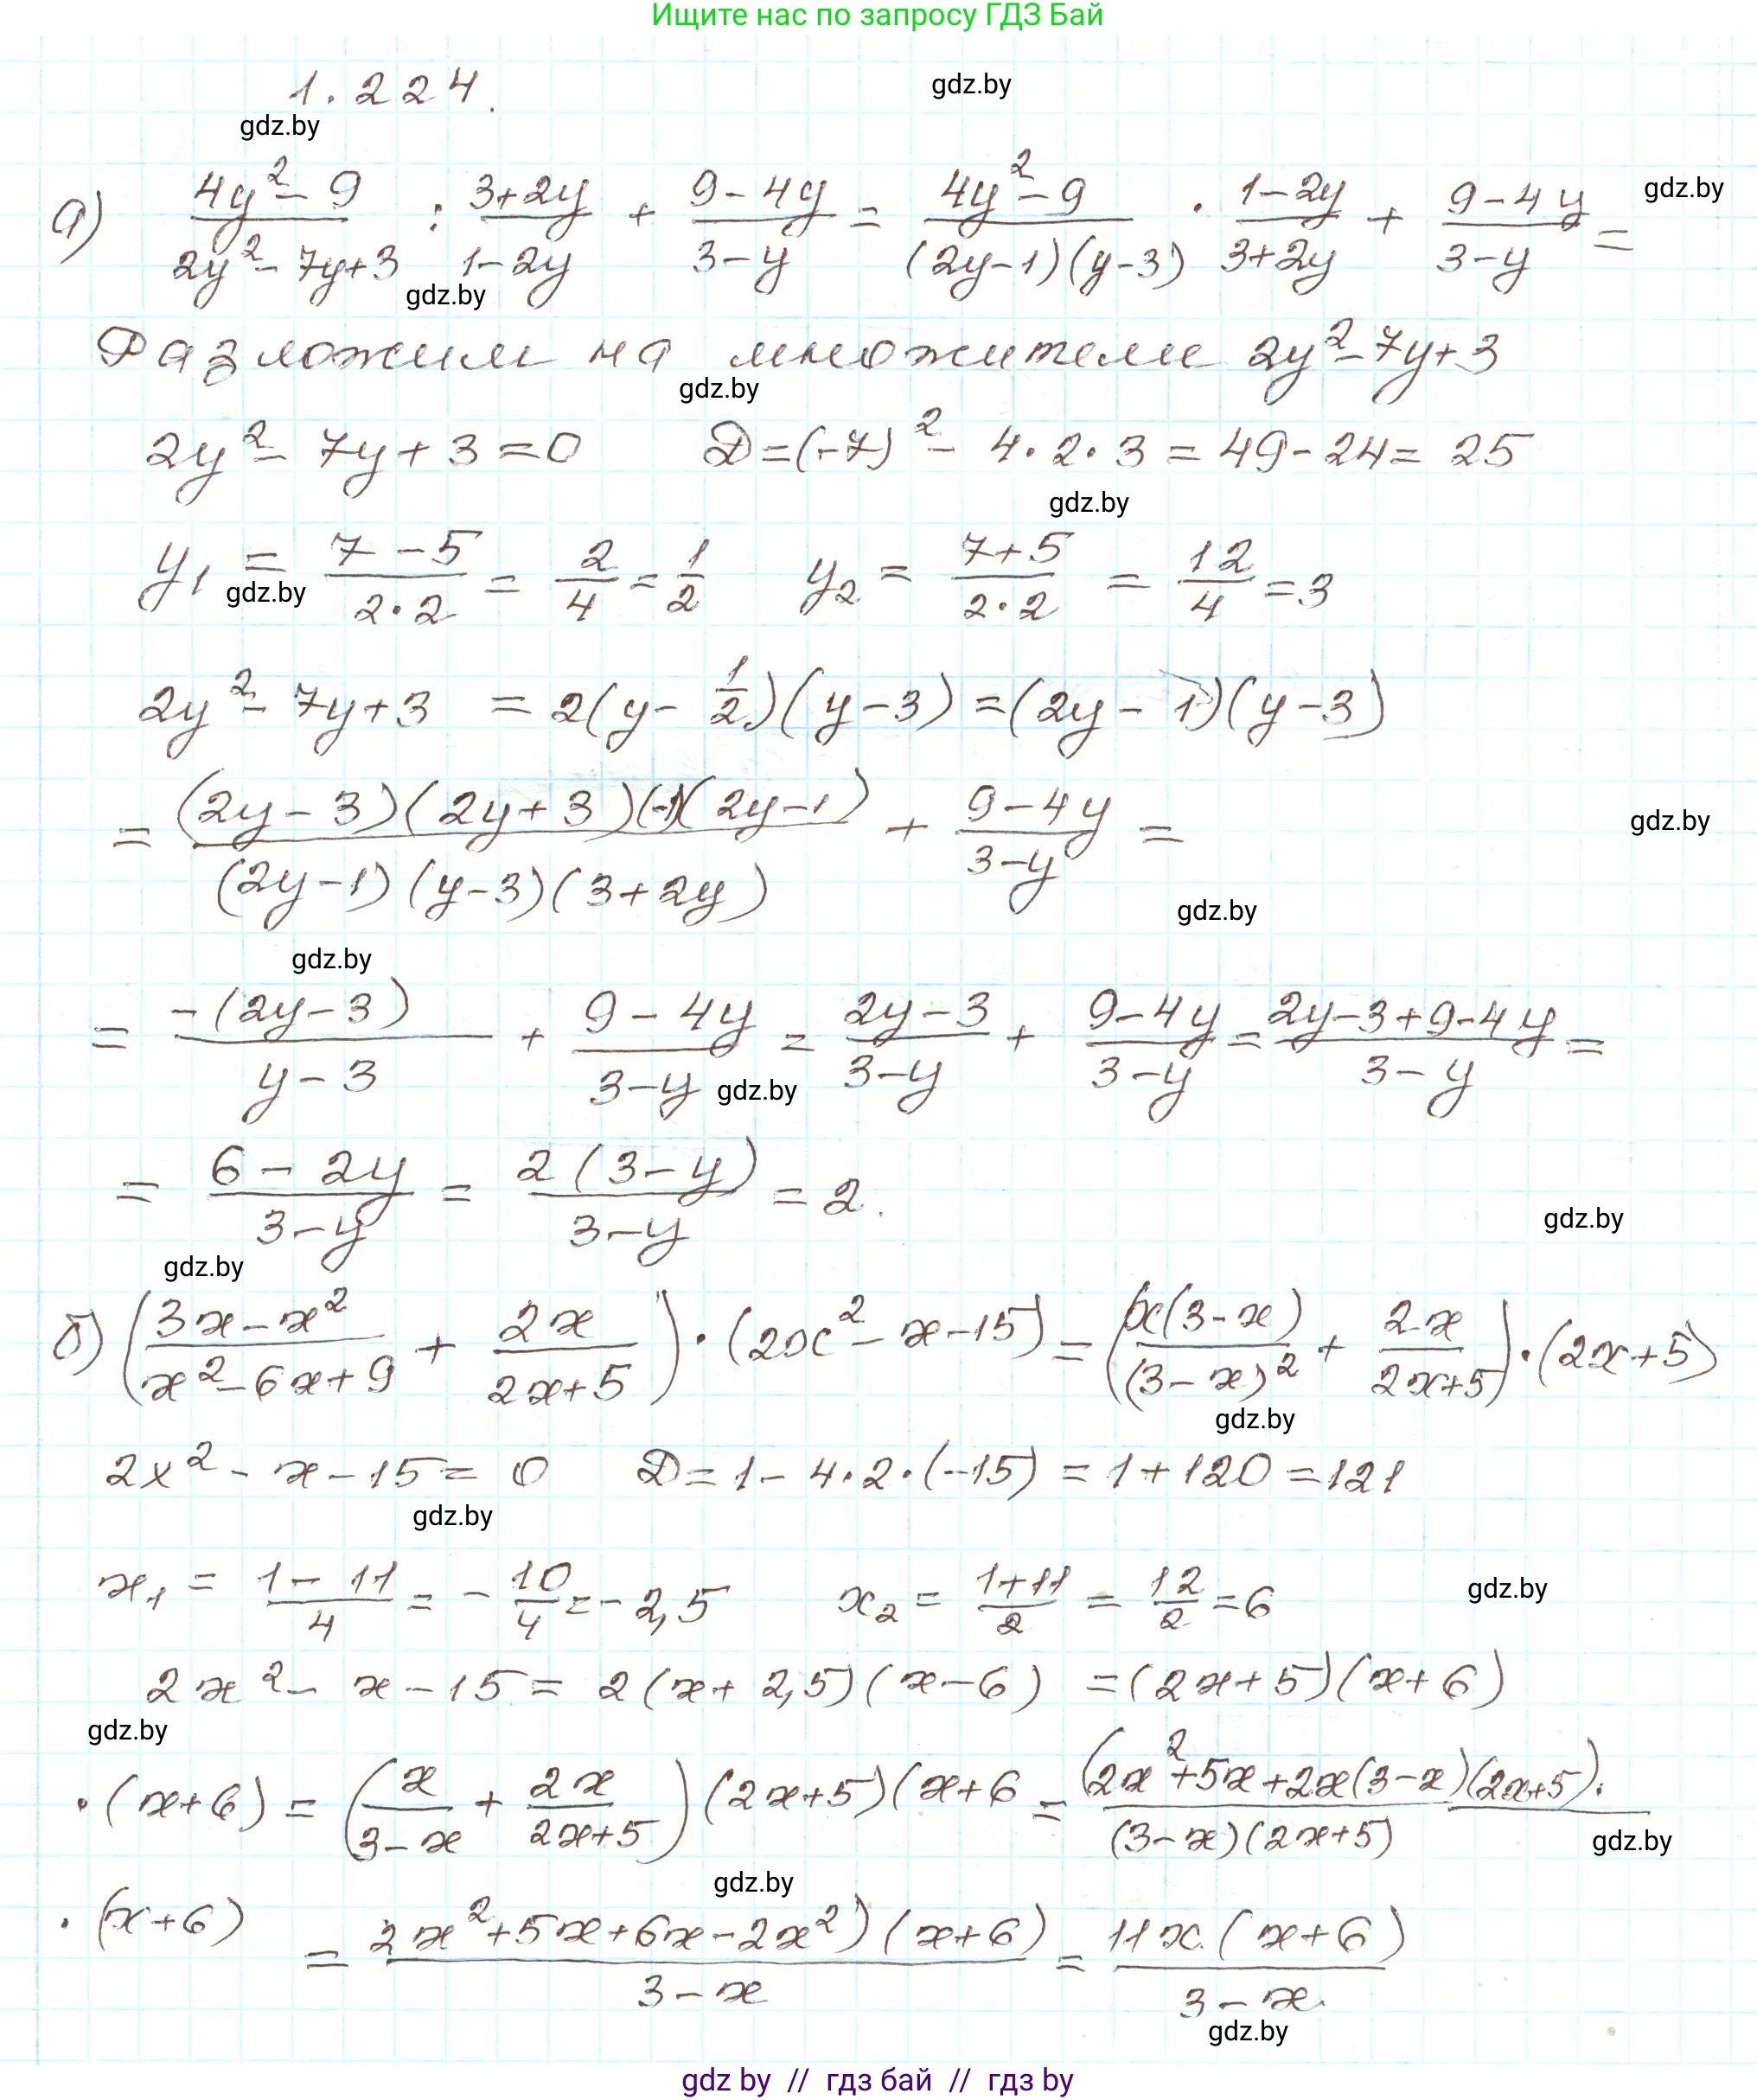 Ищите нас по запросу ГДЗ Бай
1.224.
gdz.by
gdz.by
а) (4y² - 9)/(2y² - 7y + 3) : (3 + 2y)/(1 - 2y) + (9 - 4y)/(3 - y) = (4y² - 9)/((2y - 1)(y - 3)) · (1 - 2y)/(3 + 2y) + (9 - 4y)/(3 - y) =
gdz.by
gdz.by
Разложим на множители 2y² - 7y + 3
gdz.by
2y² - 7y + 3 = 0 D = (-7)² - 4·2·3 = 49 - 24 = 25
gdz.by
y₁ = (7 - 5)/(2·2) = 2/4 = 1/2 y₂ = (7 + 5)/(2·2) = 12/4 = 3
gdz.by
2y² - 7y + 3 = 2(y - 1/2)(y - 3) = (2y - 1)(y - 3)
= ((2y - 3)(2y + 3)(-1)(2y - 1))/((2y - 1)(y - 3)(3 + 2y)) + (9 - 4y)/(3 - y) =
gdz.by
gdz.by
gdz.by
= (-(2y - 3))/(y - 3) + (9 - 4y)/(3 - y) = (2y - 3)/(3 - y) + (9 - 4y)/(3 - y) = (2y - 3 + 9 - 4y)/(3 - y) =
gdz.by
= (6 - 2y)/(3 - y) = (2(3 - y))/(3 - y) = 2.
gdz.by
gdz.by
б) ((3x - x²)/(x² - 6x + 9) + 2x/(2x + 5)) · (2x² - x - 15) = (x(3 - x)/(3 - x)² + 2x/(2x + 5)) · (2x + 5)
gdz.by
2x² - x - 15 = 0 D = 1 - 4·2·(-15) = 1 + 120 = 121
gdz.by
x₁ = (1 - 11)/4 = -10/4 = -2,5 x₂ = (1 + 11)/2 = 12/2 = 6
gdz.by
2x² - x - 15 = 2(x + 2,5)(x - 6) = (2x + 5)(x + 6)
gdz.by
· (x + 6) = (x/(3 - x) + 2x/(2x + 5))(2x + 5)(x + 6 = ((2x² + 5x + 2x(3 - x)(2x + 5)·)/((3 - x)(2x + 5))
gdz.by
gdz.by
· (x + 6) = (2x² + 5x + 6x - 2x²)(x + 6)/(3 - x) = 11x(x + 6)/(3 - x)
gdz.by
gdz by // гдз бай // гдз by